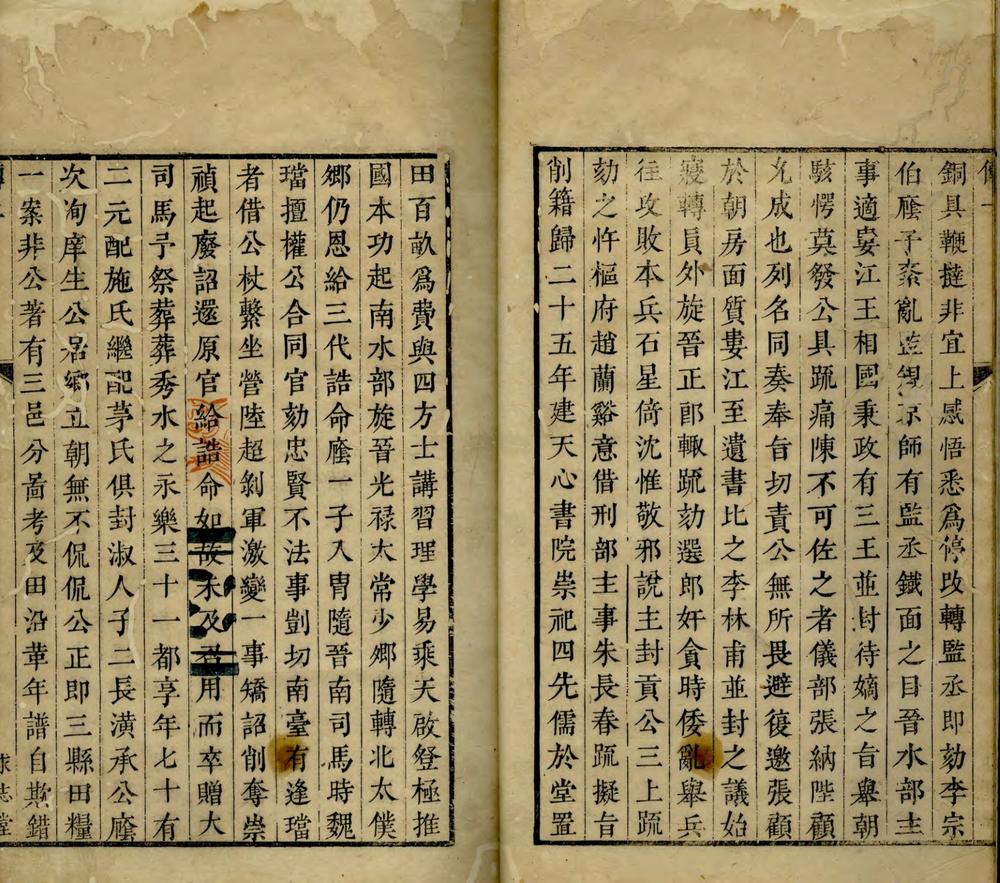 銅具鞭撻非宜上感悟悉爲停改轉監丞即劾李宗
伯廕子紊亂監規京師有監丞鐵面之目晉水部主
事適婁江王相國秉政有三王並封待嫡之旨舉朝
駭愕莫發公具疏痛陳不可佐之者儀部張納陛顧
允成也列名同奏奉旨切責公無所畏避復邀張顧
於朝房面質婁江至遺書比之李林甫並封之議始
寢轉員外旋晉正郎輒疏劾選郎奸貪時倭亂舉兵
往攻敗本兵石星倚沈惟敬邪說主封貢公三上疏
劾之忤樞府趙蘭谿意借刑部主事朱長春疏擬旨
削籍歸二十五年建天心書院崇祀四先儒於堂置
田百畝爲費與四方士講習理學易乘天啟登極推
國本功起南水部旋晉光禄太常少卿隨轉北太僕
卿仍恩給三代誥命廕一子入胄隨晉南司馬時魏
璫擅權公合同官劾忠賢不法事剴切南臺有逢璫
者借公杖繫坐營陸超剝軍激變一事矯詔削奪崇
禎起廢詔還原官給誥命如故未及召用而卒贈大
司馬予祭葬葬秀水之永樂三十一都享年七十有
二元配施氏繼配茅氏俱封淑人子二長潢承公廕
次洵庠生公居鄉立朝無不侃侃公正即三縣田糧
一案非公著有三邑分啚考及田沿革年譜自欺錯